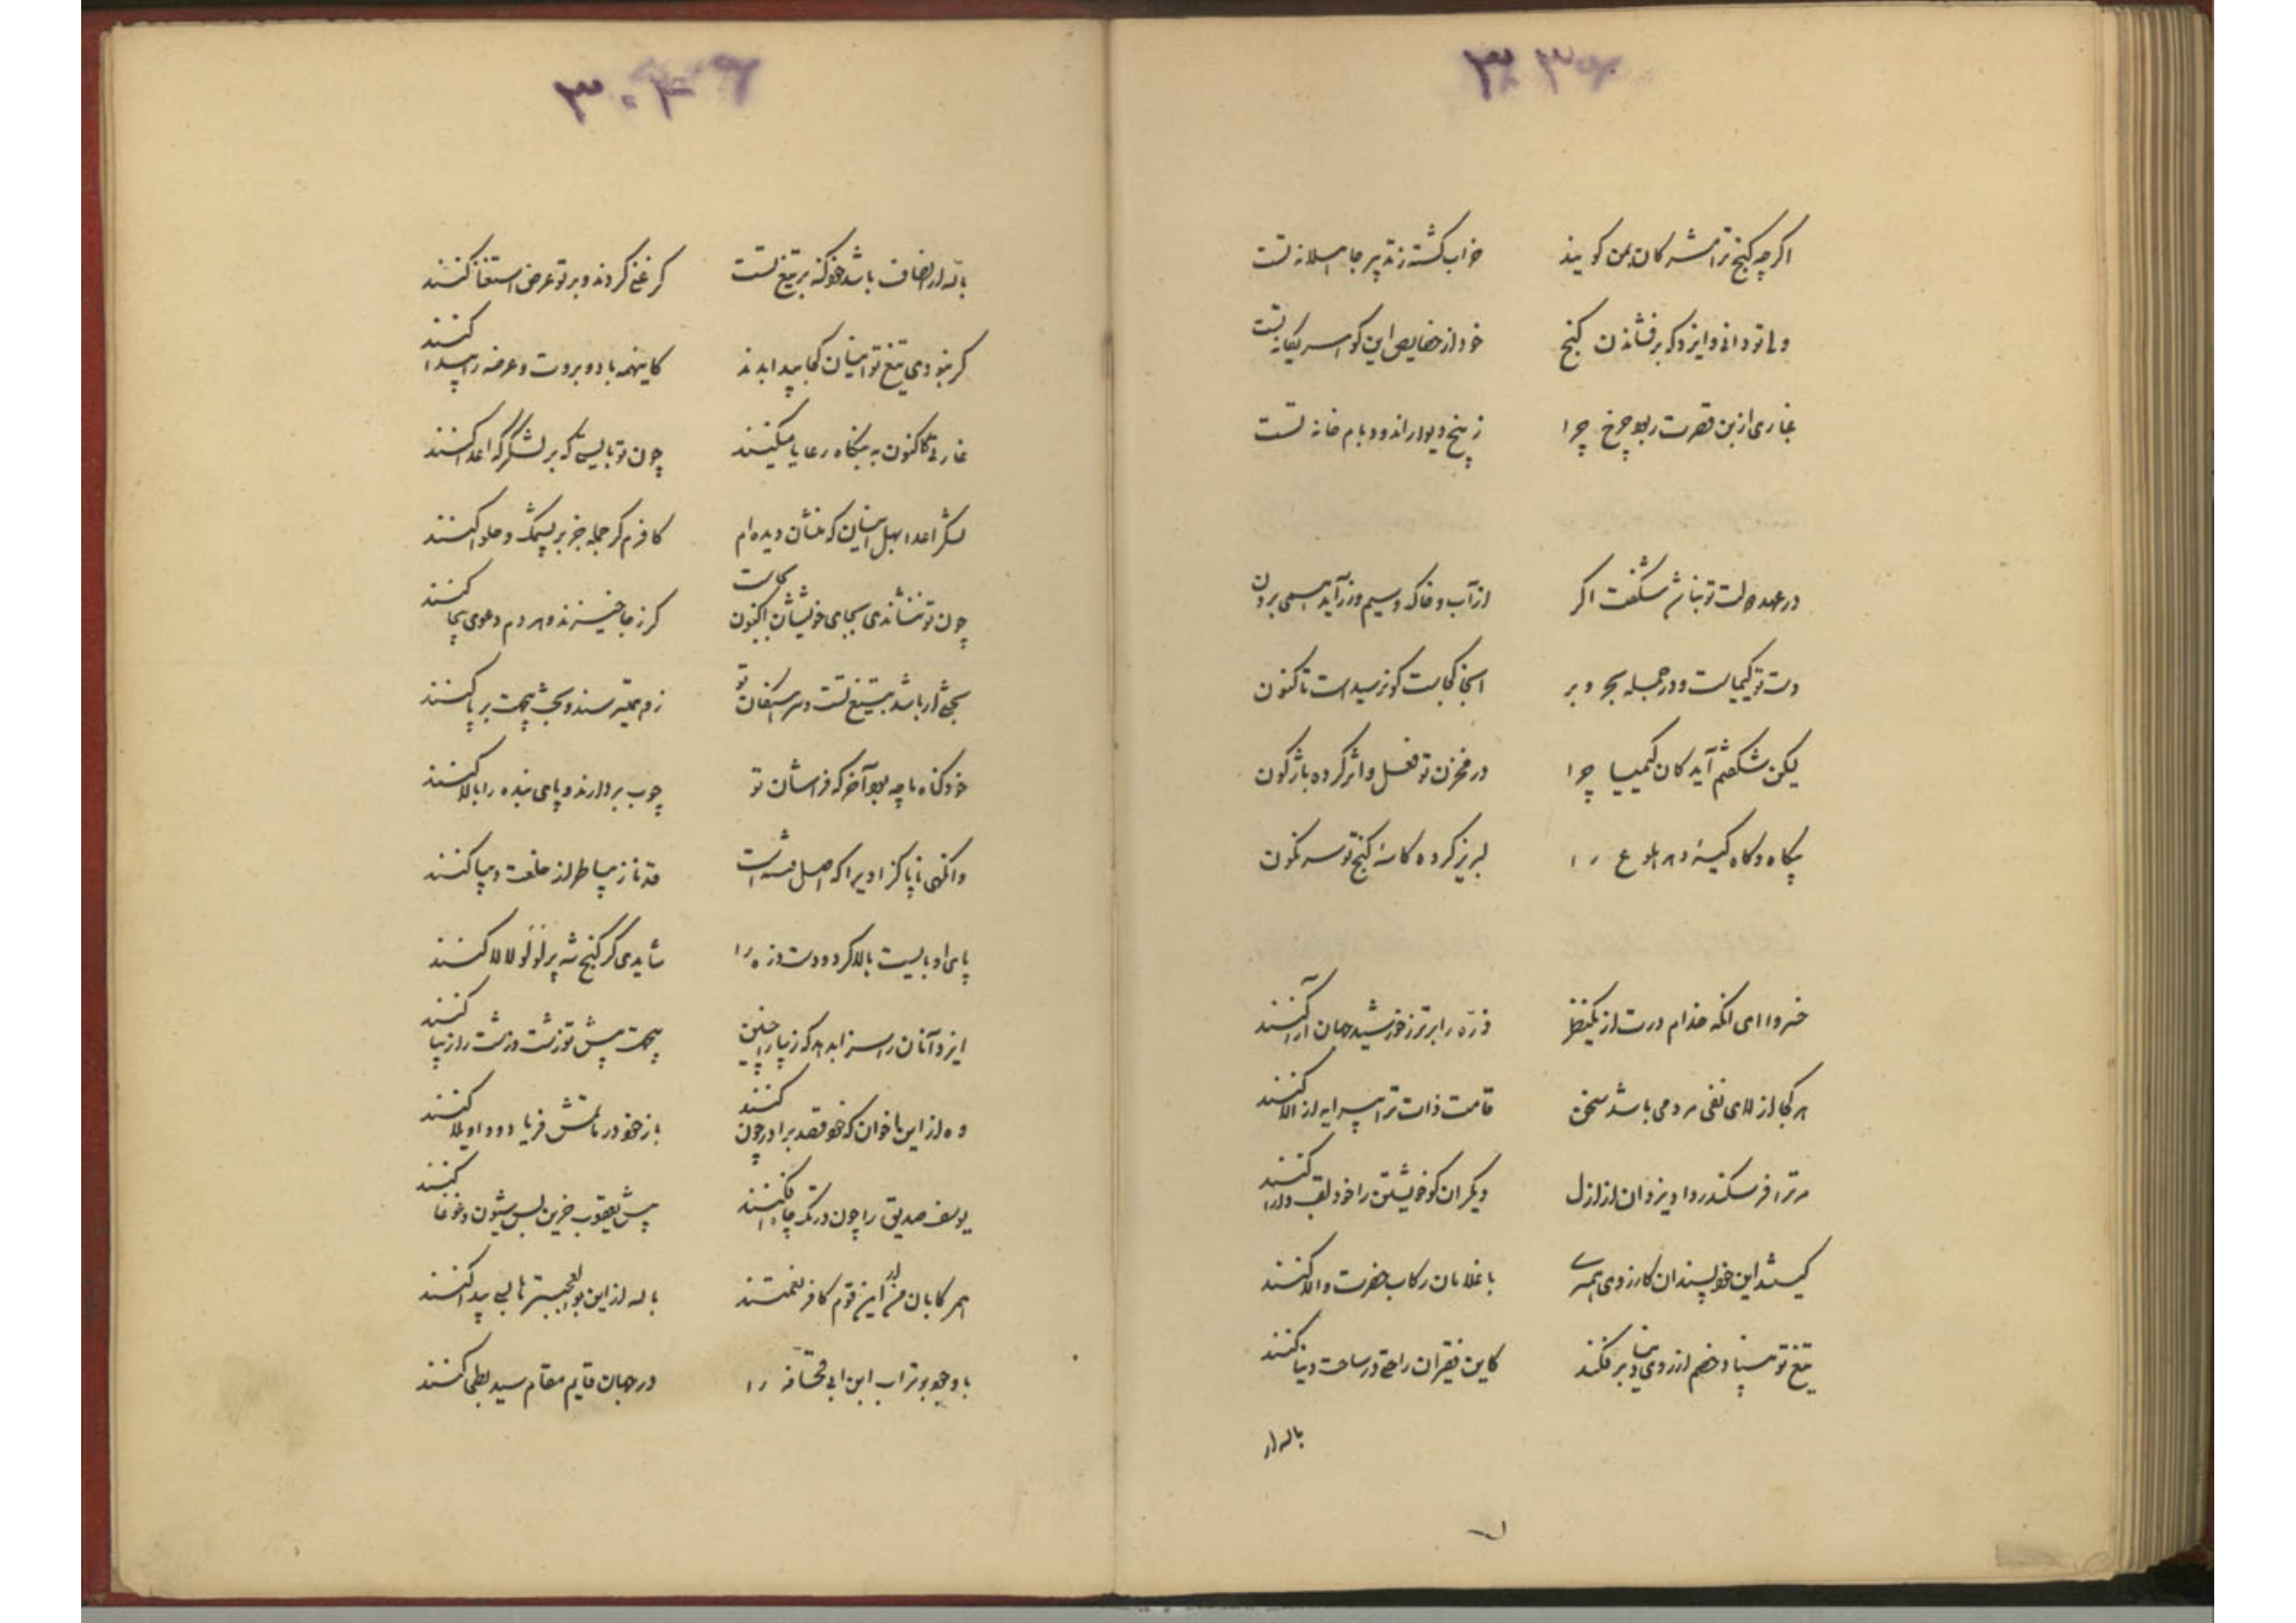 ۳۰۳
اگرچه گنج ترا مشرکان بمن گویند خراب گشته زتدبیر جاهلانه تست
ولی تو دانی و ایزد که برفشاندن گنج خود از خصایص این گوهر یگانه تست
عاری ازین قصرت ربود چرخ چرا زپنج دیوار اندود بام خانه تست
در عهد دولت تو نباشم شگفت اگر از آب و خاک و سیم و زر آید همی برون
دست تو کیمیاست و در جمله بحر و بر اینجا کجاست کو نرسیدست تاکنون
لیکن شگفتم آید کان کیمیا چرا در مخزن تو فعل و اثر کرده باژگون
بیگاه و گاه کیسه و هر بلوع را لبریز کرده کاسه گنج تو سرنگون
خسروا ای آنکه خدام درت از یک نظر ذره را برتر ز خورشید جهان آرا کنند
هر کجا از لای نفی مردمی باشد سخن قامت ذات ترا پیرایه از الا کنند
مر ترا فر سکندر داد یزدان از ازل دیگران گو خویشتن را خود لقب دارا کنند
کیستند این خودپسندان کارزوی همسری با غلامان رکاب حضرت والا کنند
تیغ تو بنیاد خصم از روی دنیا برفکند کاین فقیران راحتی در ساحت دنیا کنند
بالله ار
۳۰۴
بالله ار انصاف باشد خود نه بر تیغ تست کر غنی گردند و بر تو عرض استغنا کنند
گر نبودی تیغ تو اینان کجا پیدا بدند کاینهمه باد و بروت و عرضه را پیدا کنند
غارتی کاکنون به بنگاه رعایا میکنند چون تو بایستی که بر لشگرگه اعدا کنند
لشکر اعدا بهل اینان که منشان دیده‌ام کافرم گر حمله جز بر پشمک و حلوا کنند
چون تو ننشاندی بجای خویششان اکنون بجاست کر زجا خیزند و هر دم دعوی بیجا کنند
بحثی ار باشد به تیغ تست و سر اشفان تو زم نمیترسند و بحث بیجهت بر پا کنند
خود گناه ما چه بود آخر که فراشان تو چوب بردارند و پای بنده را بالا کنند
وانگهی ناپاکزادی را که اصل فتنه است قد ناز بیبا طراز خلعت دیبا کنند
پای او بایست بالا کرد و دست دزد را شایدی گر گنج شه پر لؤلؤ لالا کنند
ایزد آنان را سزا بدهد که زیبا را چنین بیجهت پیش تو زشت و زشت را زیبا کنند
وه از این باخوان که خود قصد برادر چون کنند باز خود در ماتمش فریاد و واویلا کنند
یوسف صدیق را چون در تک چاه افکنند پیش یعقوب حزین بس شیون و غوغا کنند
همرکابان من از این قوم کافر نعمتند بالله از این بوالعجبتر ها بسی پیدا کنند
با وجود بوتراب ابن ابی قحافه را در جهان قایم مقام سید بطحی کنند